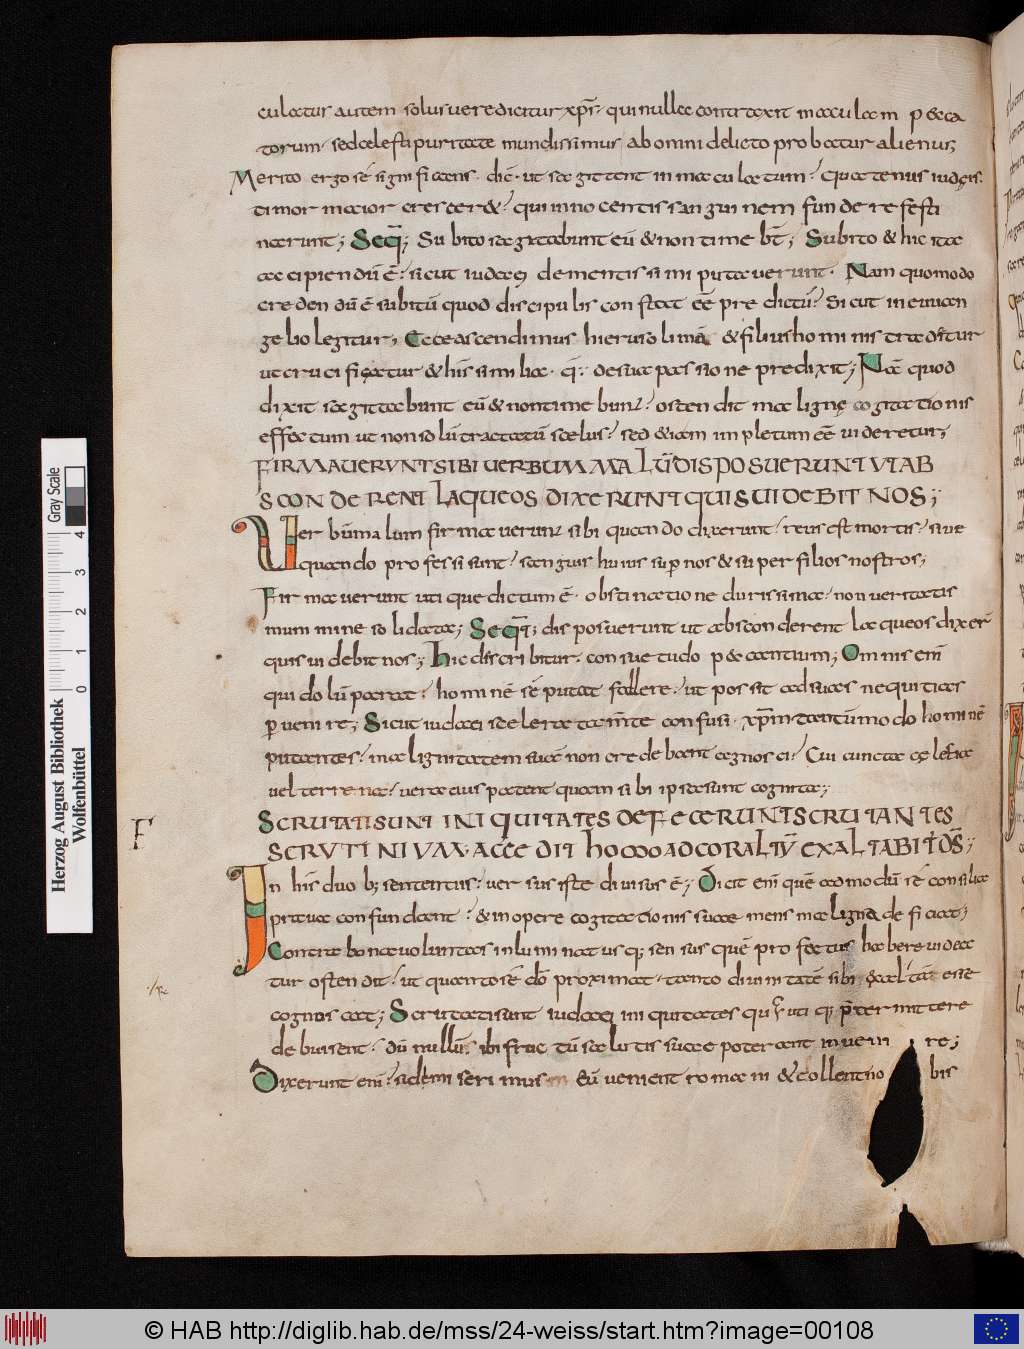 culatur autem solus vere dicitur xp̄s· qui nulla contraxit maculam pecca
torum· sed caelesti puritate mundissimus ab omni delicto probatur alienus;
Merito ergo sē significans· dic̄· ut sagittent in maculatum· quatenus iudęis·
timor maior cresceret· qui innocentis sanguinem fundere festi
narunt; Seq̄; Subito sagittabunt eū & non timebt̄; Subito & hic ita
accipiendū ē· sicut iudaei dementissimi putaverunt· Nam quomodo
credendū ē subitū quod discipulis constat eē predictū· Sicut in euuan
gelio legitur, Ecce ascendimus hierusolimā & filius hominis tradetur
ut crucifigatur & his similia· q̄· de sua passione predixit; Nā quod
dixit sagittabunt eū & non timebunt· ostendit malignę cogitationis
effectum ut non solū tractatū scelus· sed etiam impletum eē videretur;
FIRMAVERVNT SIBI VERBUM MALŪ DISPOSUERUNT VT AB
SCONDERENT LAQUEOS DIXERUNT QUIS VIDEBIT NOS;
Verbū malum firmaverunt sibi quando dixerunt· reus est mortis· sive
quando professi sunt· sanguis huius sup̄ nos & super filios nostros;
Firmaverunt utique dictum ē· obstinatione durissima· non veritatis
inmine solidata; Seq̄i; disposuerunt ut absconderent laqueos dixer̄
quis videbit nos; Hic describitur· consuetudo peccantium; Omnis enī
qui dolū parat· hominē sē putat fallere· ut possit ad suas nequitias
p̄venire; Sicut iudaei scelerata m̄te confusi· xp̄m tantūmodo hominē
putantes· malignitatem suā non credebant cognosci· Cui cuncta cęlestia
vel terrena· vera eius patent quam sibi ipsa sunt cognita;
SCRUTATI SUNT INIQUITATES DEFECERUNT SCRUTANTES
SCRVTINIVM· ACCEDIT HOMO AD COR ALTŪ EXALTABIT̄ D̄S;
F
In his duob; sententiis· versus iste divisus ē; Dicit enī quē admodū sē consilia
prava confundant· & in opere cogitationis suae mens maligna deficiat;
Contra bona voluntas inluminatusq; sensus quē profectus habere videa
tur ostendit· ut quanto sē dō proximat· tanto divinitatē sibi exaltatā esse
cognoscat; Scrutati sunt iudaei iniquitates qui utiq; p̄termittere
debuissent· dū nullū ibi fructū salutis suae poterant invenire;
Dixerunt enī· si dimiserimus eū venient romani & tollent nobis
Herzog August Bibliothek
Wolfenbüttel
Gray Scale
0 1 2 3 4
© HAB http://diglib.hab.de/mss/24-weiss/start.htm?image=00108